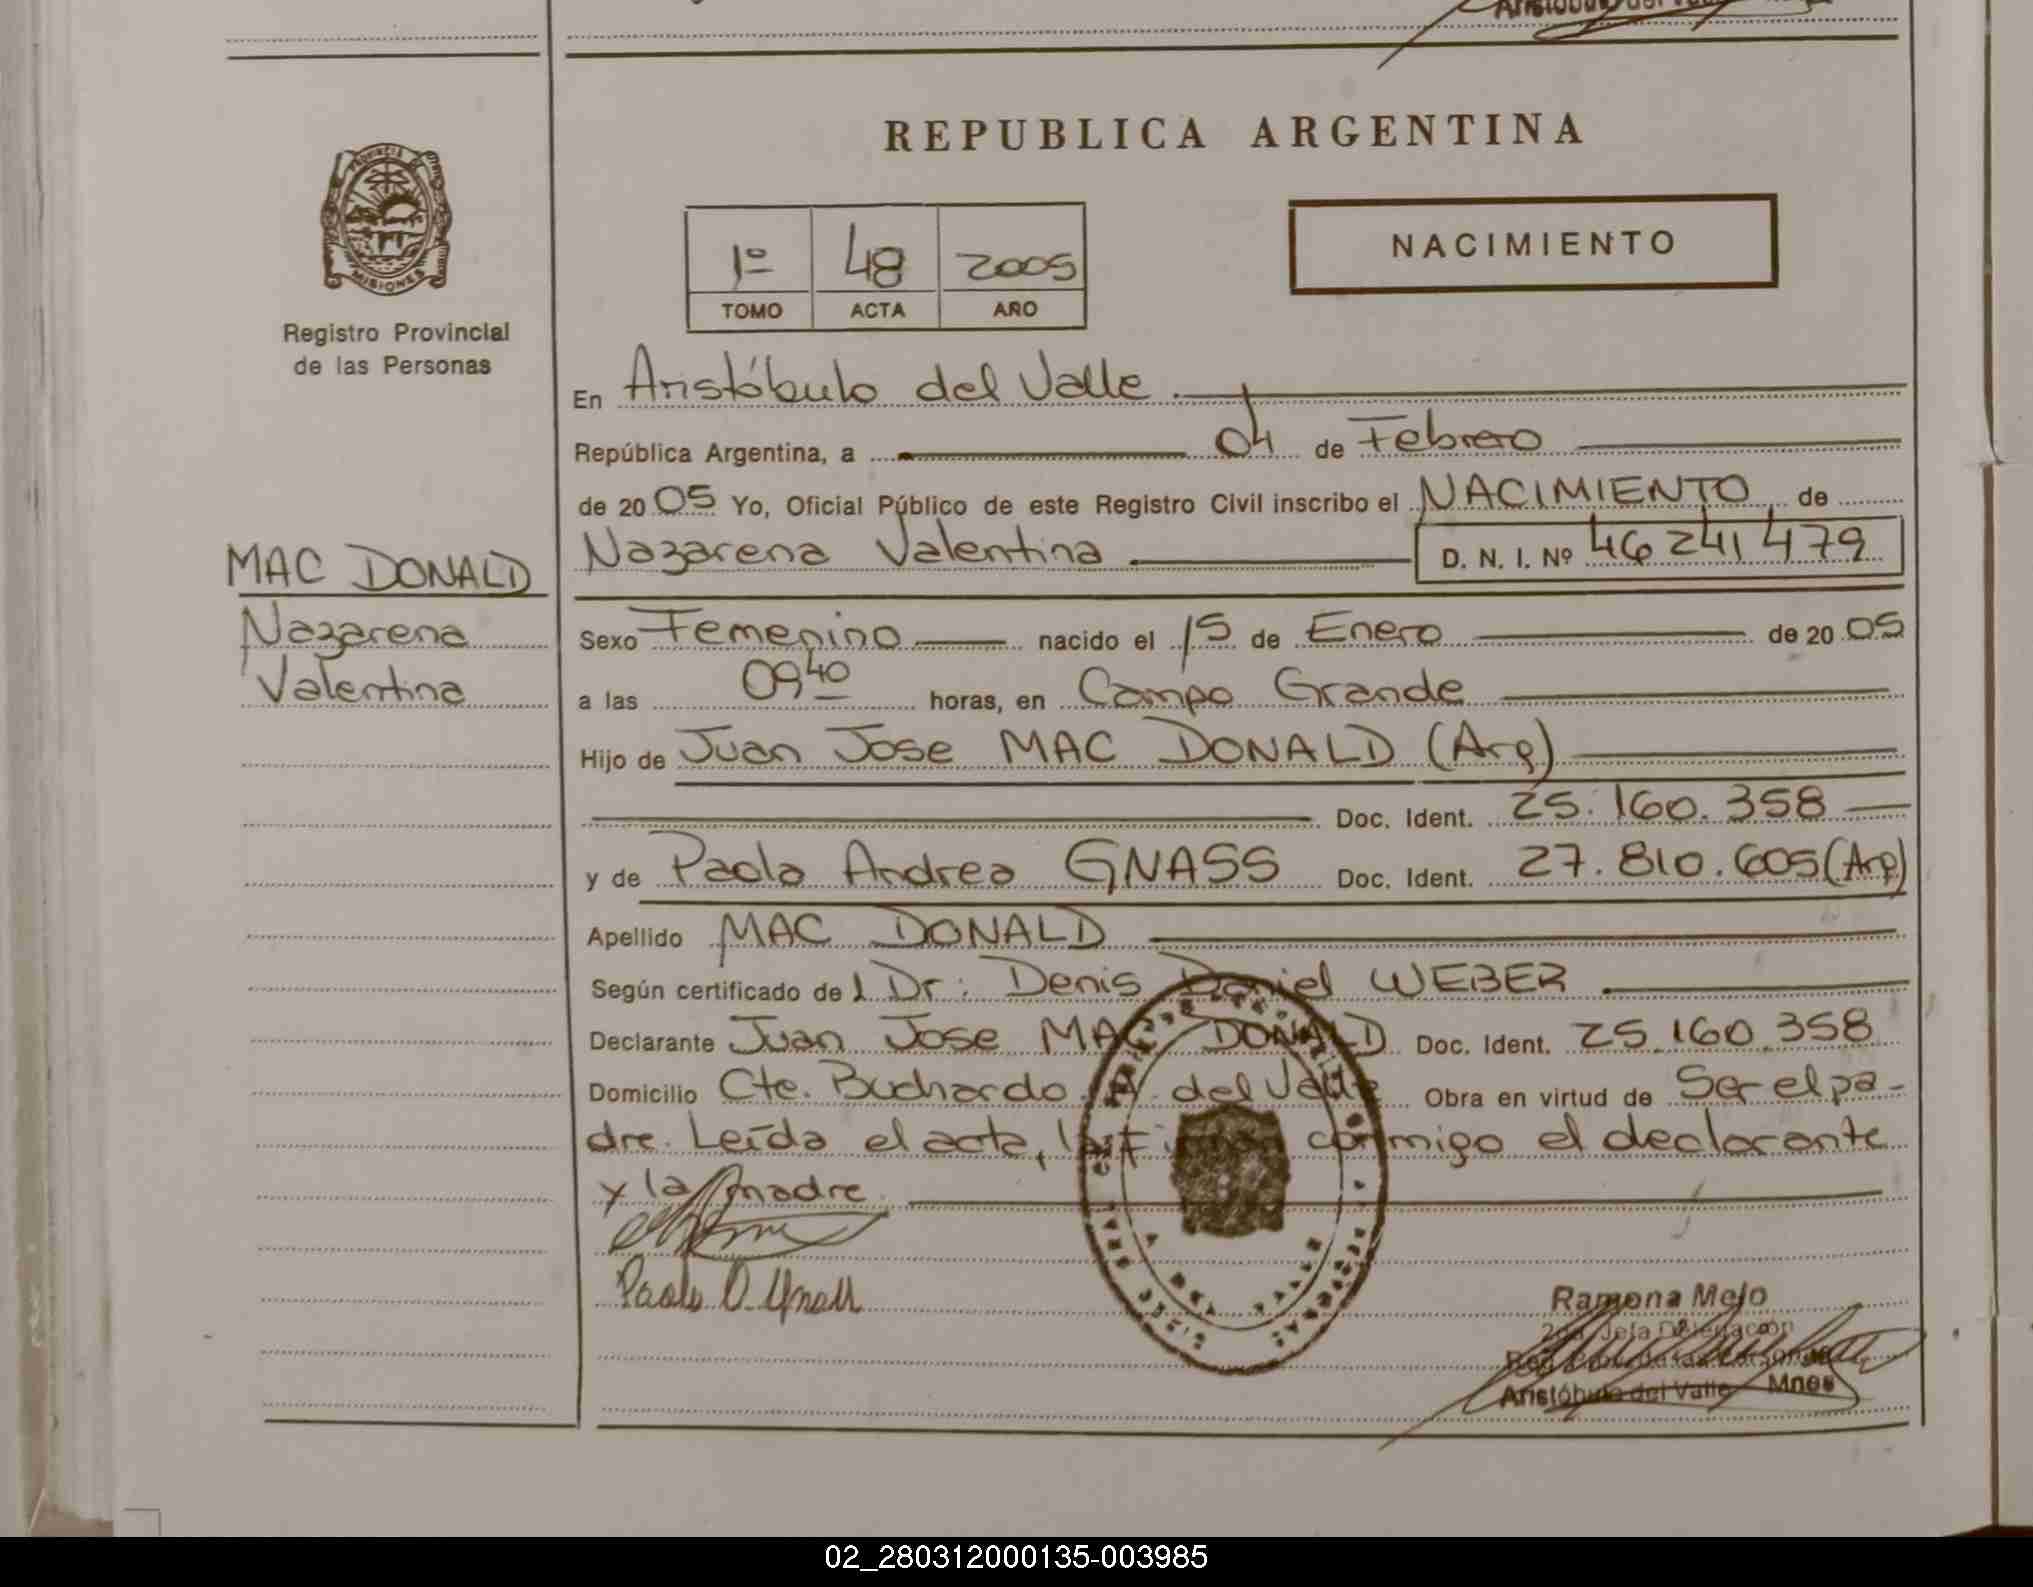 REPUBLICA ARGENTINA
PROVINCIA
MISIONES
Registro Provincial
de las Personas
1º 48 2005
TOMO ACTA AÑO
NACIMIENTO
En Aristóbulo del Valle
República Argentina, a 04 de Febrero
de 2005 Yo, Oficial Público de este Registro Civil inscribo el NACIMIENTO de
MAC DONALD
Nazarena
Valentina
Nazarena Valentina D. N. I. Nº 46241479
Sexo Femenino nacido el 15 de Enero de 2005
a las 09 40 horas, en Campo Grande
Hijo de Juan Jose MAC DONALD (Arg)
Doc. Ident. 25.160.358
y de Paola Andrea GNASS Doc. Ident. 27.810.605 (Arg)
Apellido MAC DONALD
Según certificado de l Dr. Denis Daniel WEBER
Declarante Juan Jose MAC DONALD Doc. Ident. 25.160.358
Domicilio Cte. Buchardo. A. del Valle Obra en virtud de Ser el pa-
dre. Leída el acta, la firman conmigo el declarante
y la madre.
Paola
Ramona Melo
2da. Jefa Delegación
Aristóbulo del Valle Mnes
02_280312000135-003985